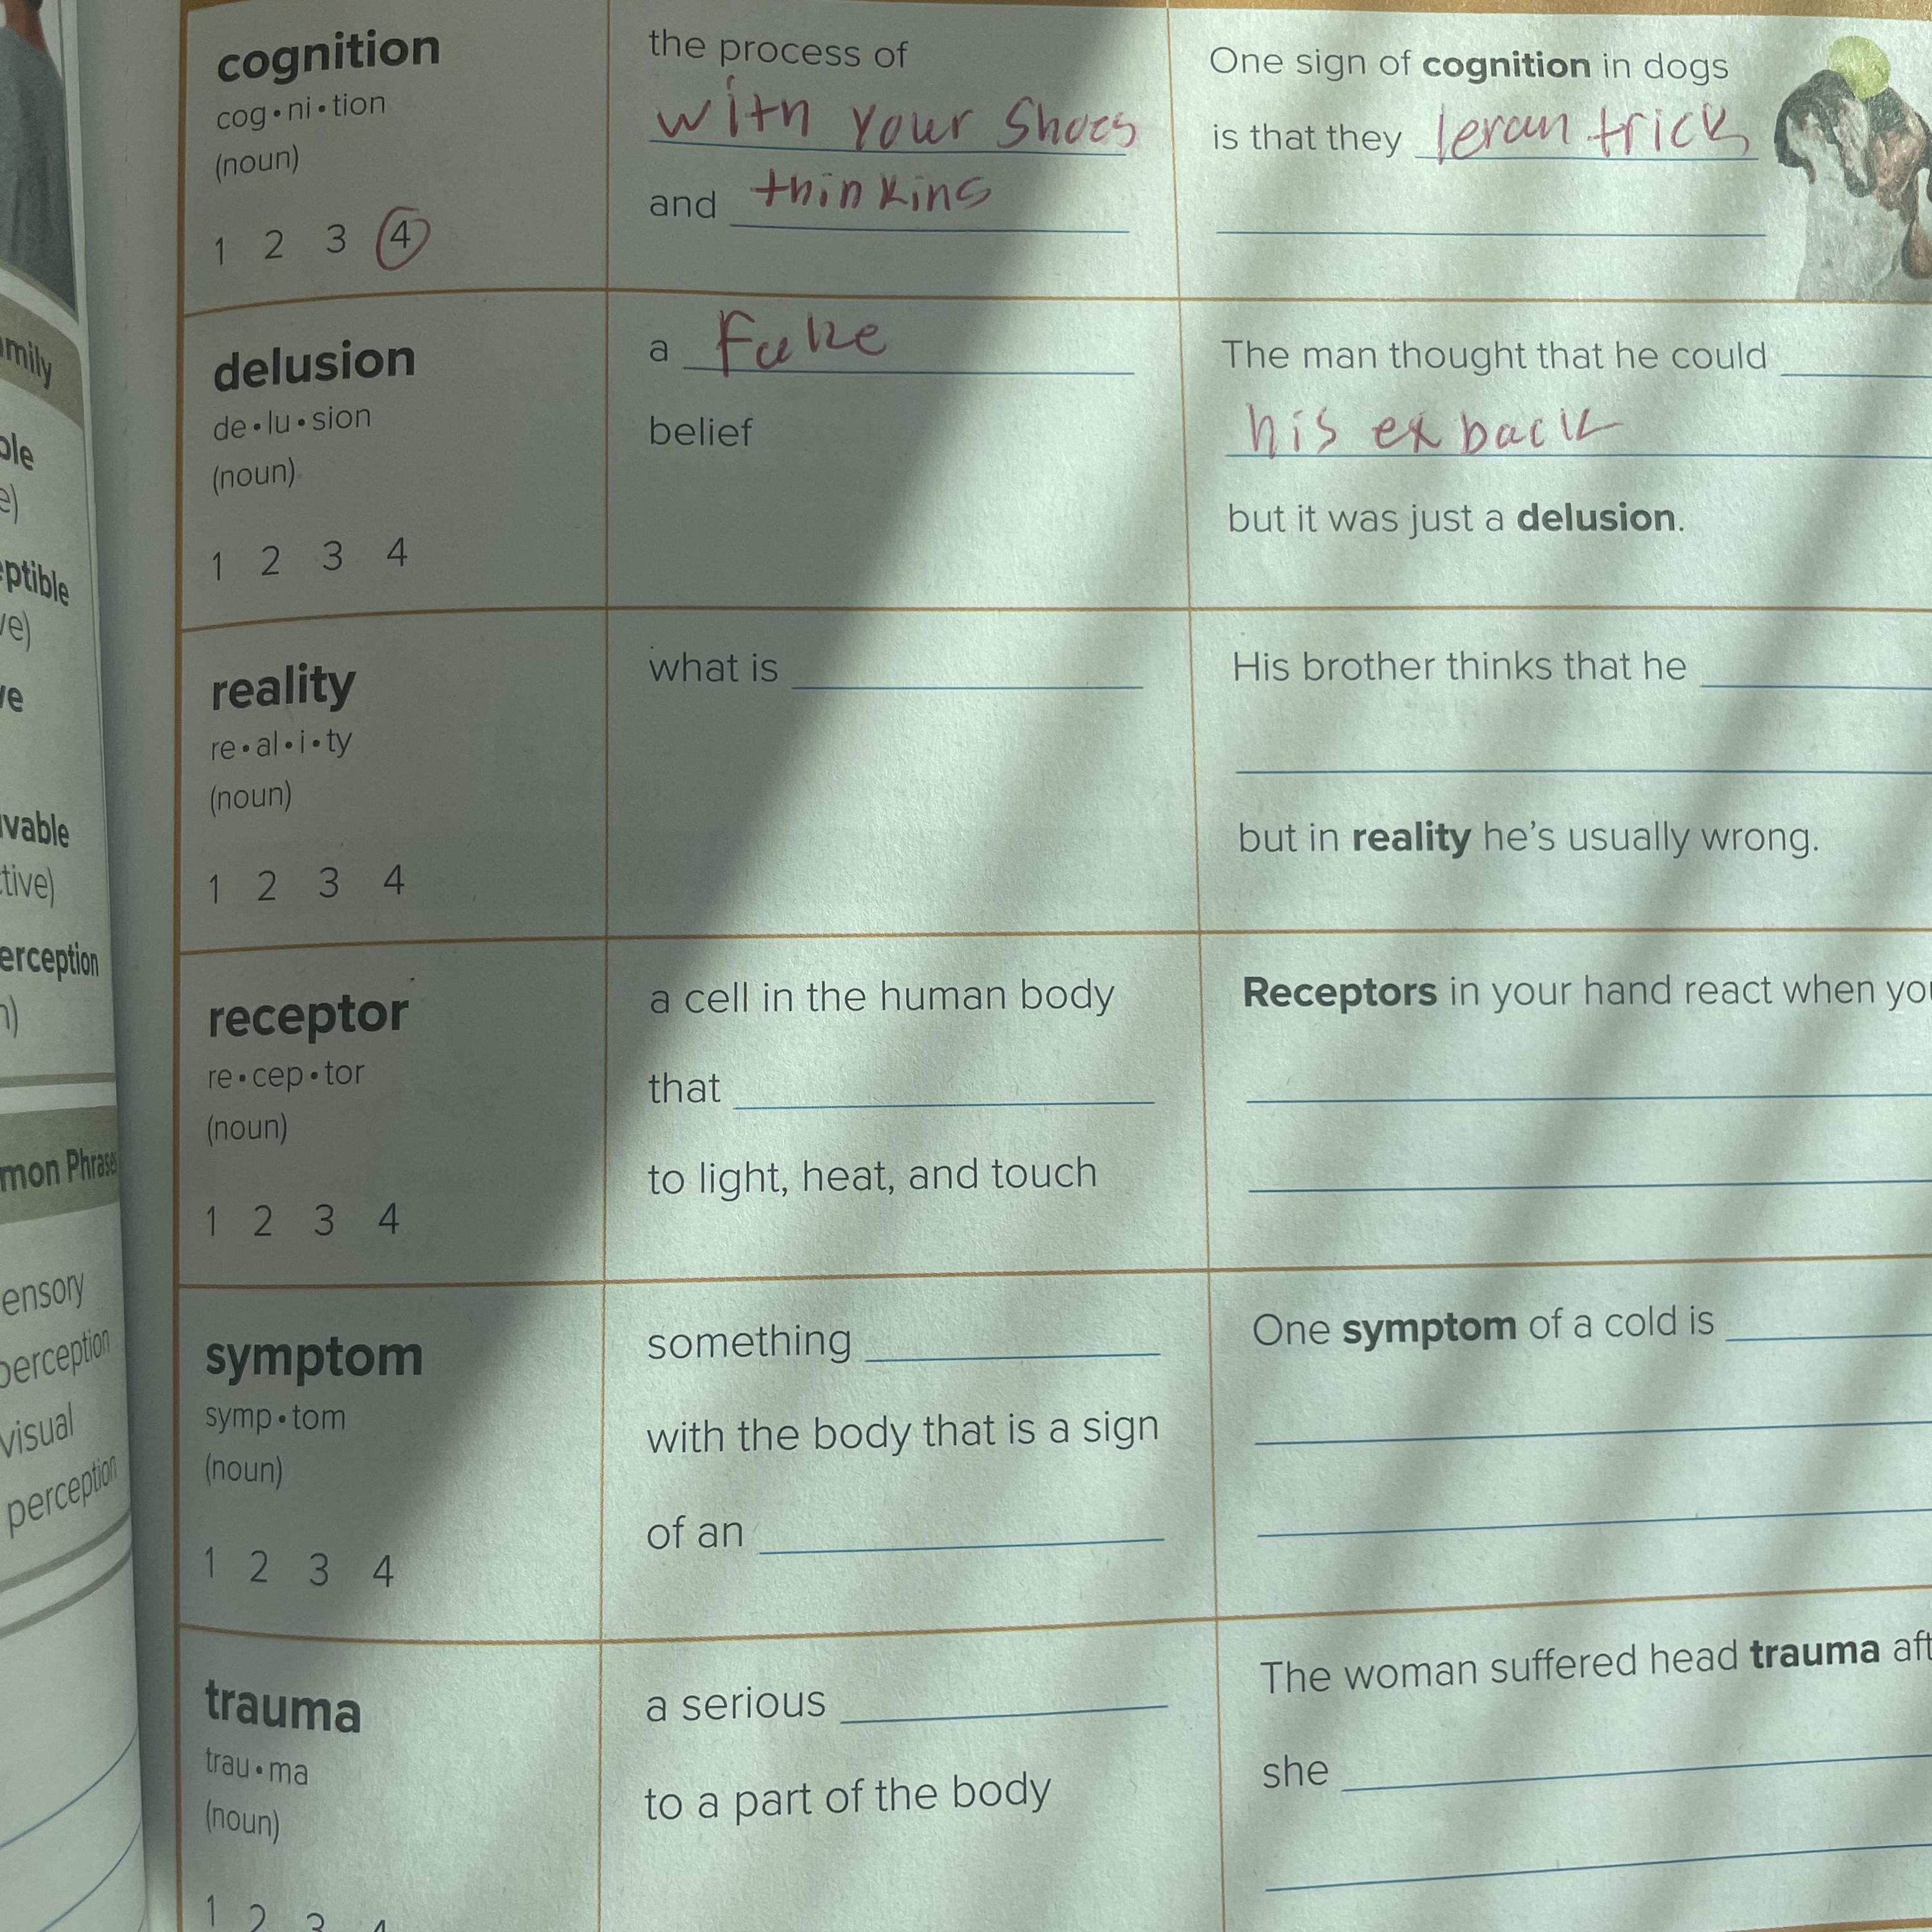 cognition
cog•ni•tion
(noun)
1 2 3 4
the process of
with your shoes
and thinking
One sign of cognition in dogs
is that they leran trick
delusion
de•lu•sion
(noun)
1 2 3 4
a Fake
belief
The man thought that he could
his ex back
but it was just a delusion.
reality
re•al•i•ty
(noun)
1 2 3 4
what is
His brother thinks that he
but in reality he's usually wrong.
receptor
re•cep•tor
(noun)
1 2 3 4
a cell in the human body
that
to light, heat, and touch
Receptors in your hand react when
symptom
symp•tom
(noun)
1 2 3 4
something
with the body that is a sign
of an
One symptom of a cold is
trauma
trau•ma
(noun)
1 2 3 4
a serious
to a part of the body
The woman suffered head trauma
she
ensory
perception
visual
perception